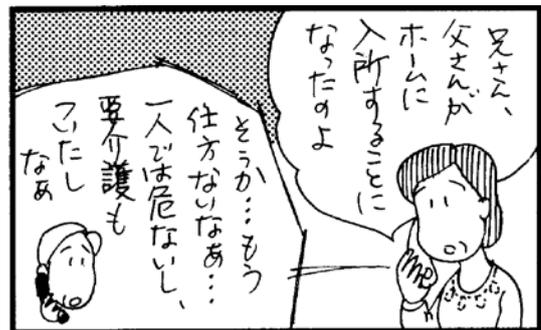 兄さん、
父さんが
ホームに
入所することに
なったのよ
そうか…もう
仕方ないなぁ…
一人では危ないし、
要介護も
ついたし
なぁ